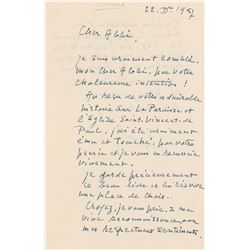 22. Dc 1957
Cher Abbé,
je suis vraiment comblé
mon cher Abbé, par votre
chaleureuse intention !
Au reçu de votre admirable
histoire sur La Paroisse et
l'Église Saint-Vincent-de
Paul, j'ai été vraiment
ému et touché, par votre
pensée et je vous en remercie
vivement.
Je garde précieusement
ce beau livre et lui réserve
une place de choix.
Croyez, je vous prie, à ma
vive reconnaissance, par
mes respectueux sentiments.